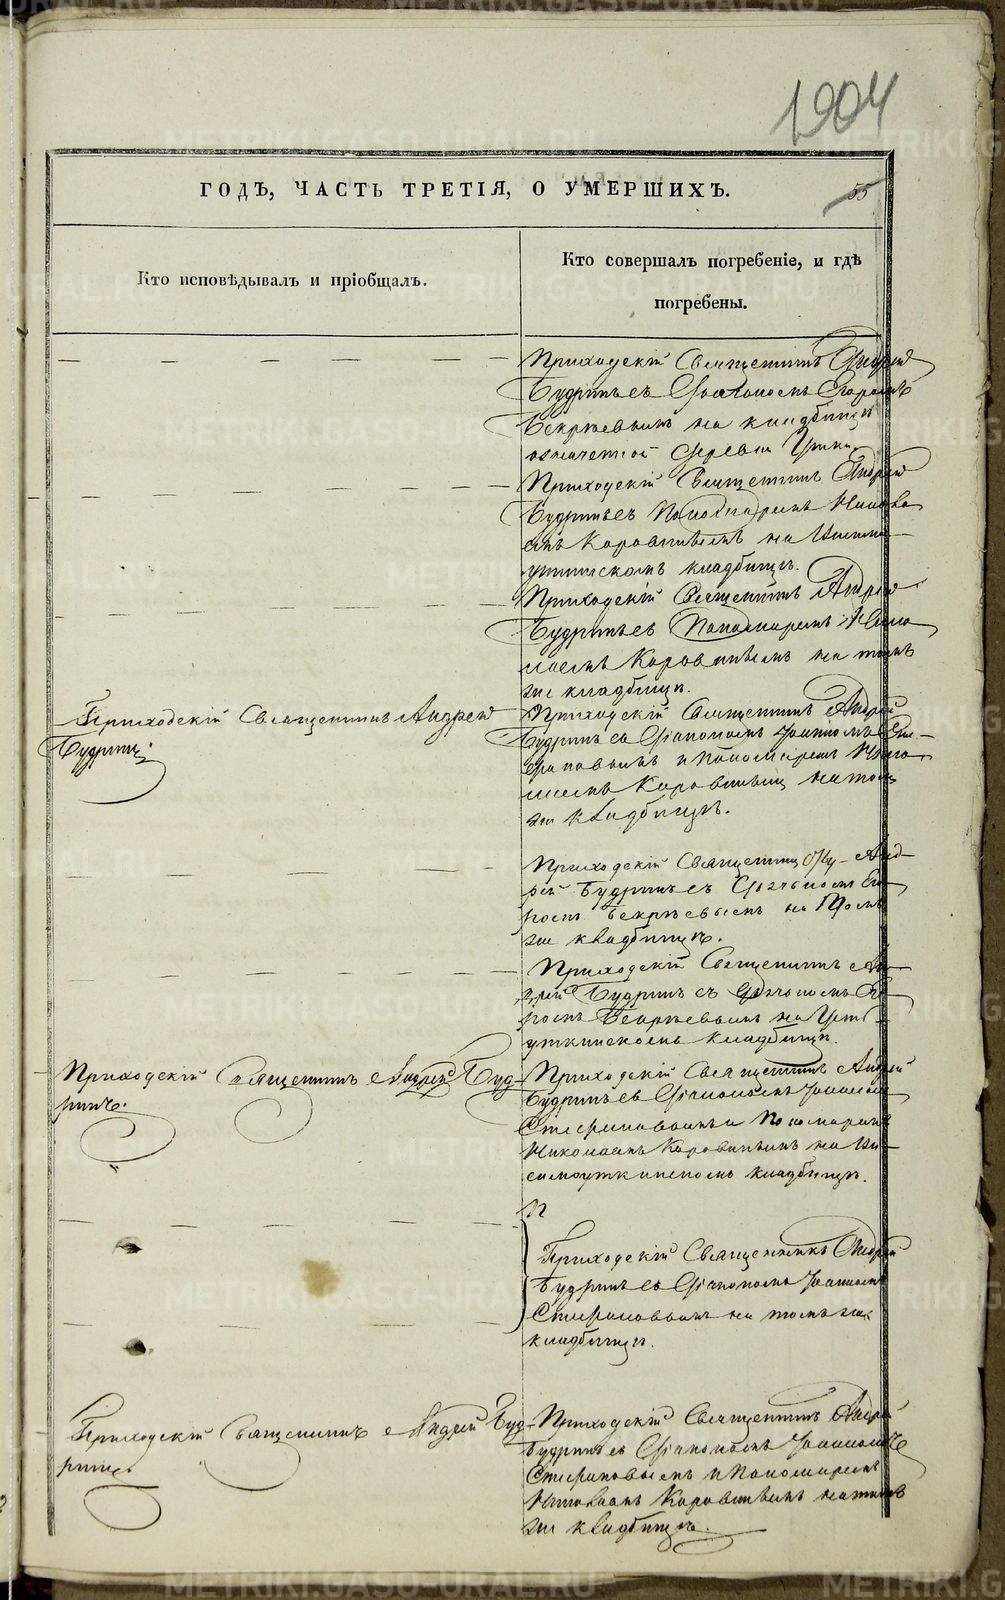 1904
ГОДЪ, ЧАСТЬ ТРЕТІЯ, О УМЕРШИХЪ.
55
Кто исповѣдывалъ и пріобщалъ.
Кто совершалъ погребеніе, и гдѣ
погребены.
Приходскій Священникъ Андрей
Будринъ съ Дьячкомъ Егоромъ
на кладбищѣ
означенной деревни
Приходскій Священникъ Андрей
Будринъ съ Пономаремъ Никола
емъ Коровинымъ на
кладбищѣ.
Приходскій Священникъ Андрей
Будринъ съ Пономаремъ Нико
лаемъ Коровинымъ на томъ
же кладбищѣ.
Приходскій Священникъ Андрей
Будринъ.
Приходскій Священникъ Андрей
Будринъ съ Діакономъ Іоанномъ Сте
фановымъ и Пономаремъ Нико
лаемъ Коровинымъ на томъ
же кладбищѣ.
Приходскій Священникъ Анд
рей Будринъ съ Дьячкомъ Его
ромъ на томъ
же кладбищѣ.
Приходскій Священникъ Ан
дрей Будринъ съ Дьячкомъ Его
ромъ на
уткинскомъ кладбищѣ.
Приходскій Священникъ Андрей Буд
ринъ.
Приходскій Священникъ Андрей
Будринъ съ Діакономъ Іоанномъ
Стефановымъ и Пономаремъ
Николаемъ Коровинымъ на
уткинскомъ кладбищѣ.
П
Приходскій Священникъ Андрей
Будринъ съ Діакономъ Іоанномъ
Стефановымъ на томъ же
кладбищѣ.
Приходскій Священникъ Андрей Буд
ринъ.
Приходскій Священникъ Андрей
Будринъ съ Діакономъ Іоанномъ
Стефановымъ и Пономаремъ
Николаемъ Коровинымъ на томъ
же кладбищѣ.
METRIKI.GASO-URAL.RU